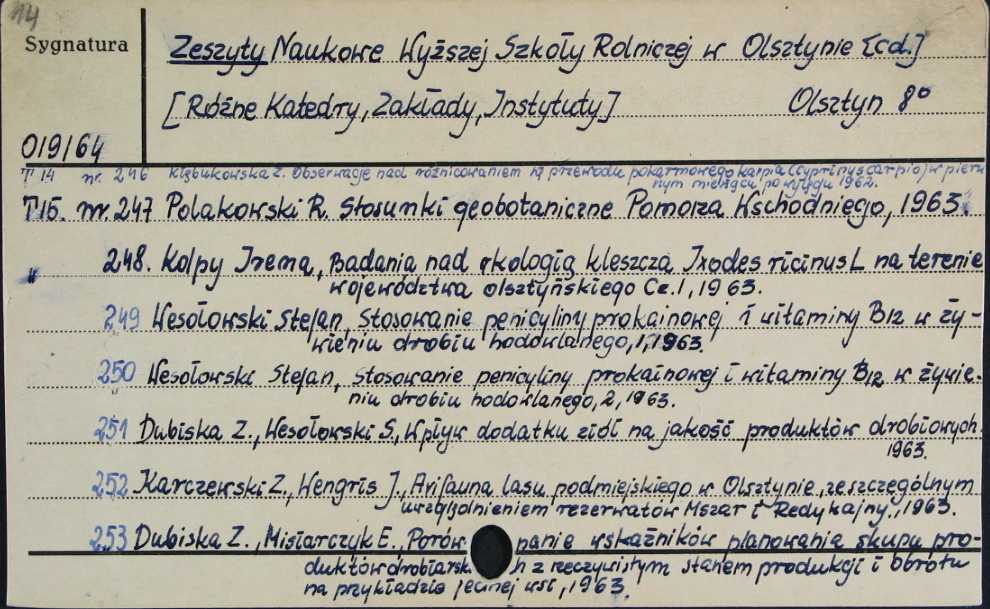 14
Sygnatura
Zeszyty Naukowe Wyższej Szkoły Rolniczej w Olsztynie [cd.]
[Różne Katedry, Zakłady, Instytuty] Olsztyn 8°
019/64
T 14 nr. 246 Kłębukowska Z. Obserwacje nad różnicowaniem się przewodu pokarmowego karpia (Cyprinus carpio) w pierw
nym miesiącu po wylęgu 1962.
T 15. nr. 247 Polakowski R. Stosunki geobotaniczne Pomorza Wschodniego, 1963.
" 248. Kolpy Irena, Badania nad ekologią kleszcza Ixodes ricinus L na terenie
województwa olsztyńskiego Cz. I, 1963.
249 Wesołowski Stefan, Stosowanie penicyliny prokainowej i witaminy B12 w ży-
wieniu drobiu hodowlanego, 1, 1963.
250 Wesołowski Stefan, Stosowanie penicyliny prokainowej i witaminy B12 w żywie-
niu drobiu hodowlanego, 2, 1963.
251 Dubiska Z., Wesołowski S., Wpływ dodatku ziół na jakość produktów drobiowych.
1963.
252 Karczewski Z., Wengris J., Avifauna lasu podmiejskiego w Olsztynie, ze szczególnym
uwzględnieniem rezerwatów Mszar i Redykajny., 1963.
253 Dubiska Z., Misiarczyk E., Porów nanie wskaźników planowania skupu pro-
duktów drobiarsk h z rzeczywistym stanem produkcji i obrotu
na przykładzie jednej wsi, 1963.